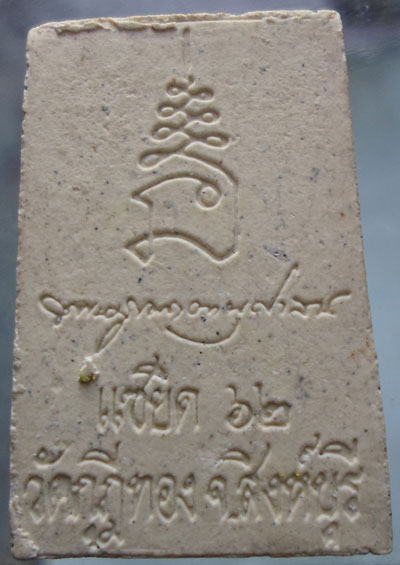 แซยิด ๖๒
วัดกุฎีทอง จ.สิงห์บุรี